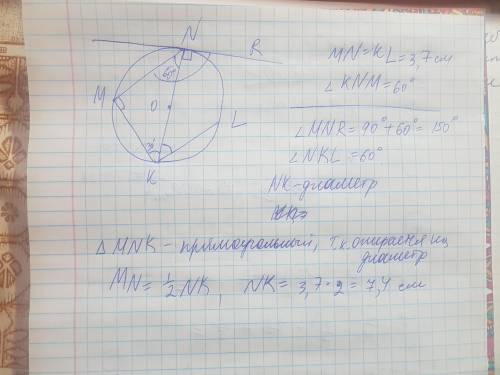 N
R
MN=KL=3,7 см
∠KNM=60°
M
60°
O
L
30°
K
∠MNR=90°+60°=150°
∠NKL=60°
NK-диаметр
△MNK - прямоугольный, т.к. опирается на
диаметр
MN=½·NK, NK=3,7·2=7,4 см